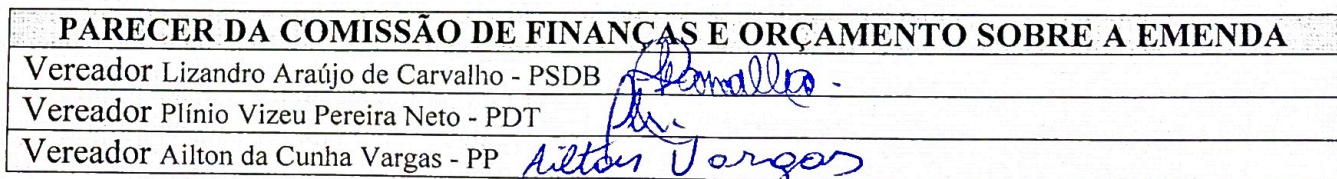 PARECER DA COMISSÃO DE FINANÇAS E ORÇAMENTO SOBRE A EMENDA
Vereador Lizandro Araújo de Carvalho - PSDB
Vereador Plínio Vizeu Pereira Neto - PDT
Vereador Ailton da Cunha Vargas - PP Ailton Vargas